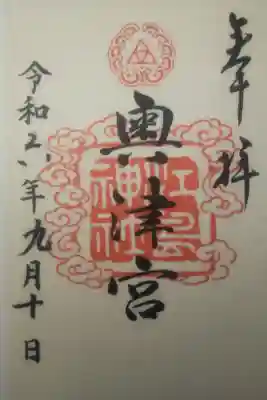 奉拝
奥津宮
江島
神社
令和 年九月十日